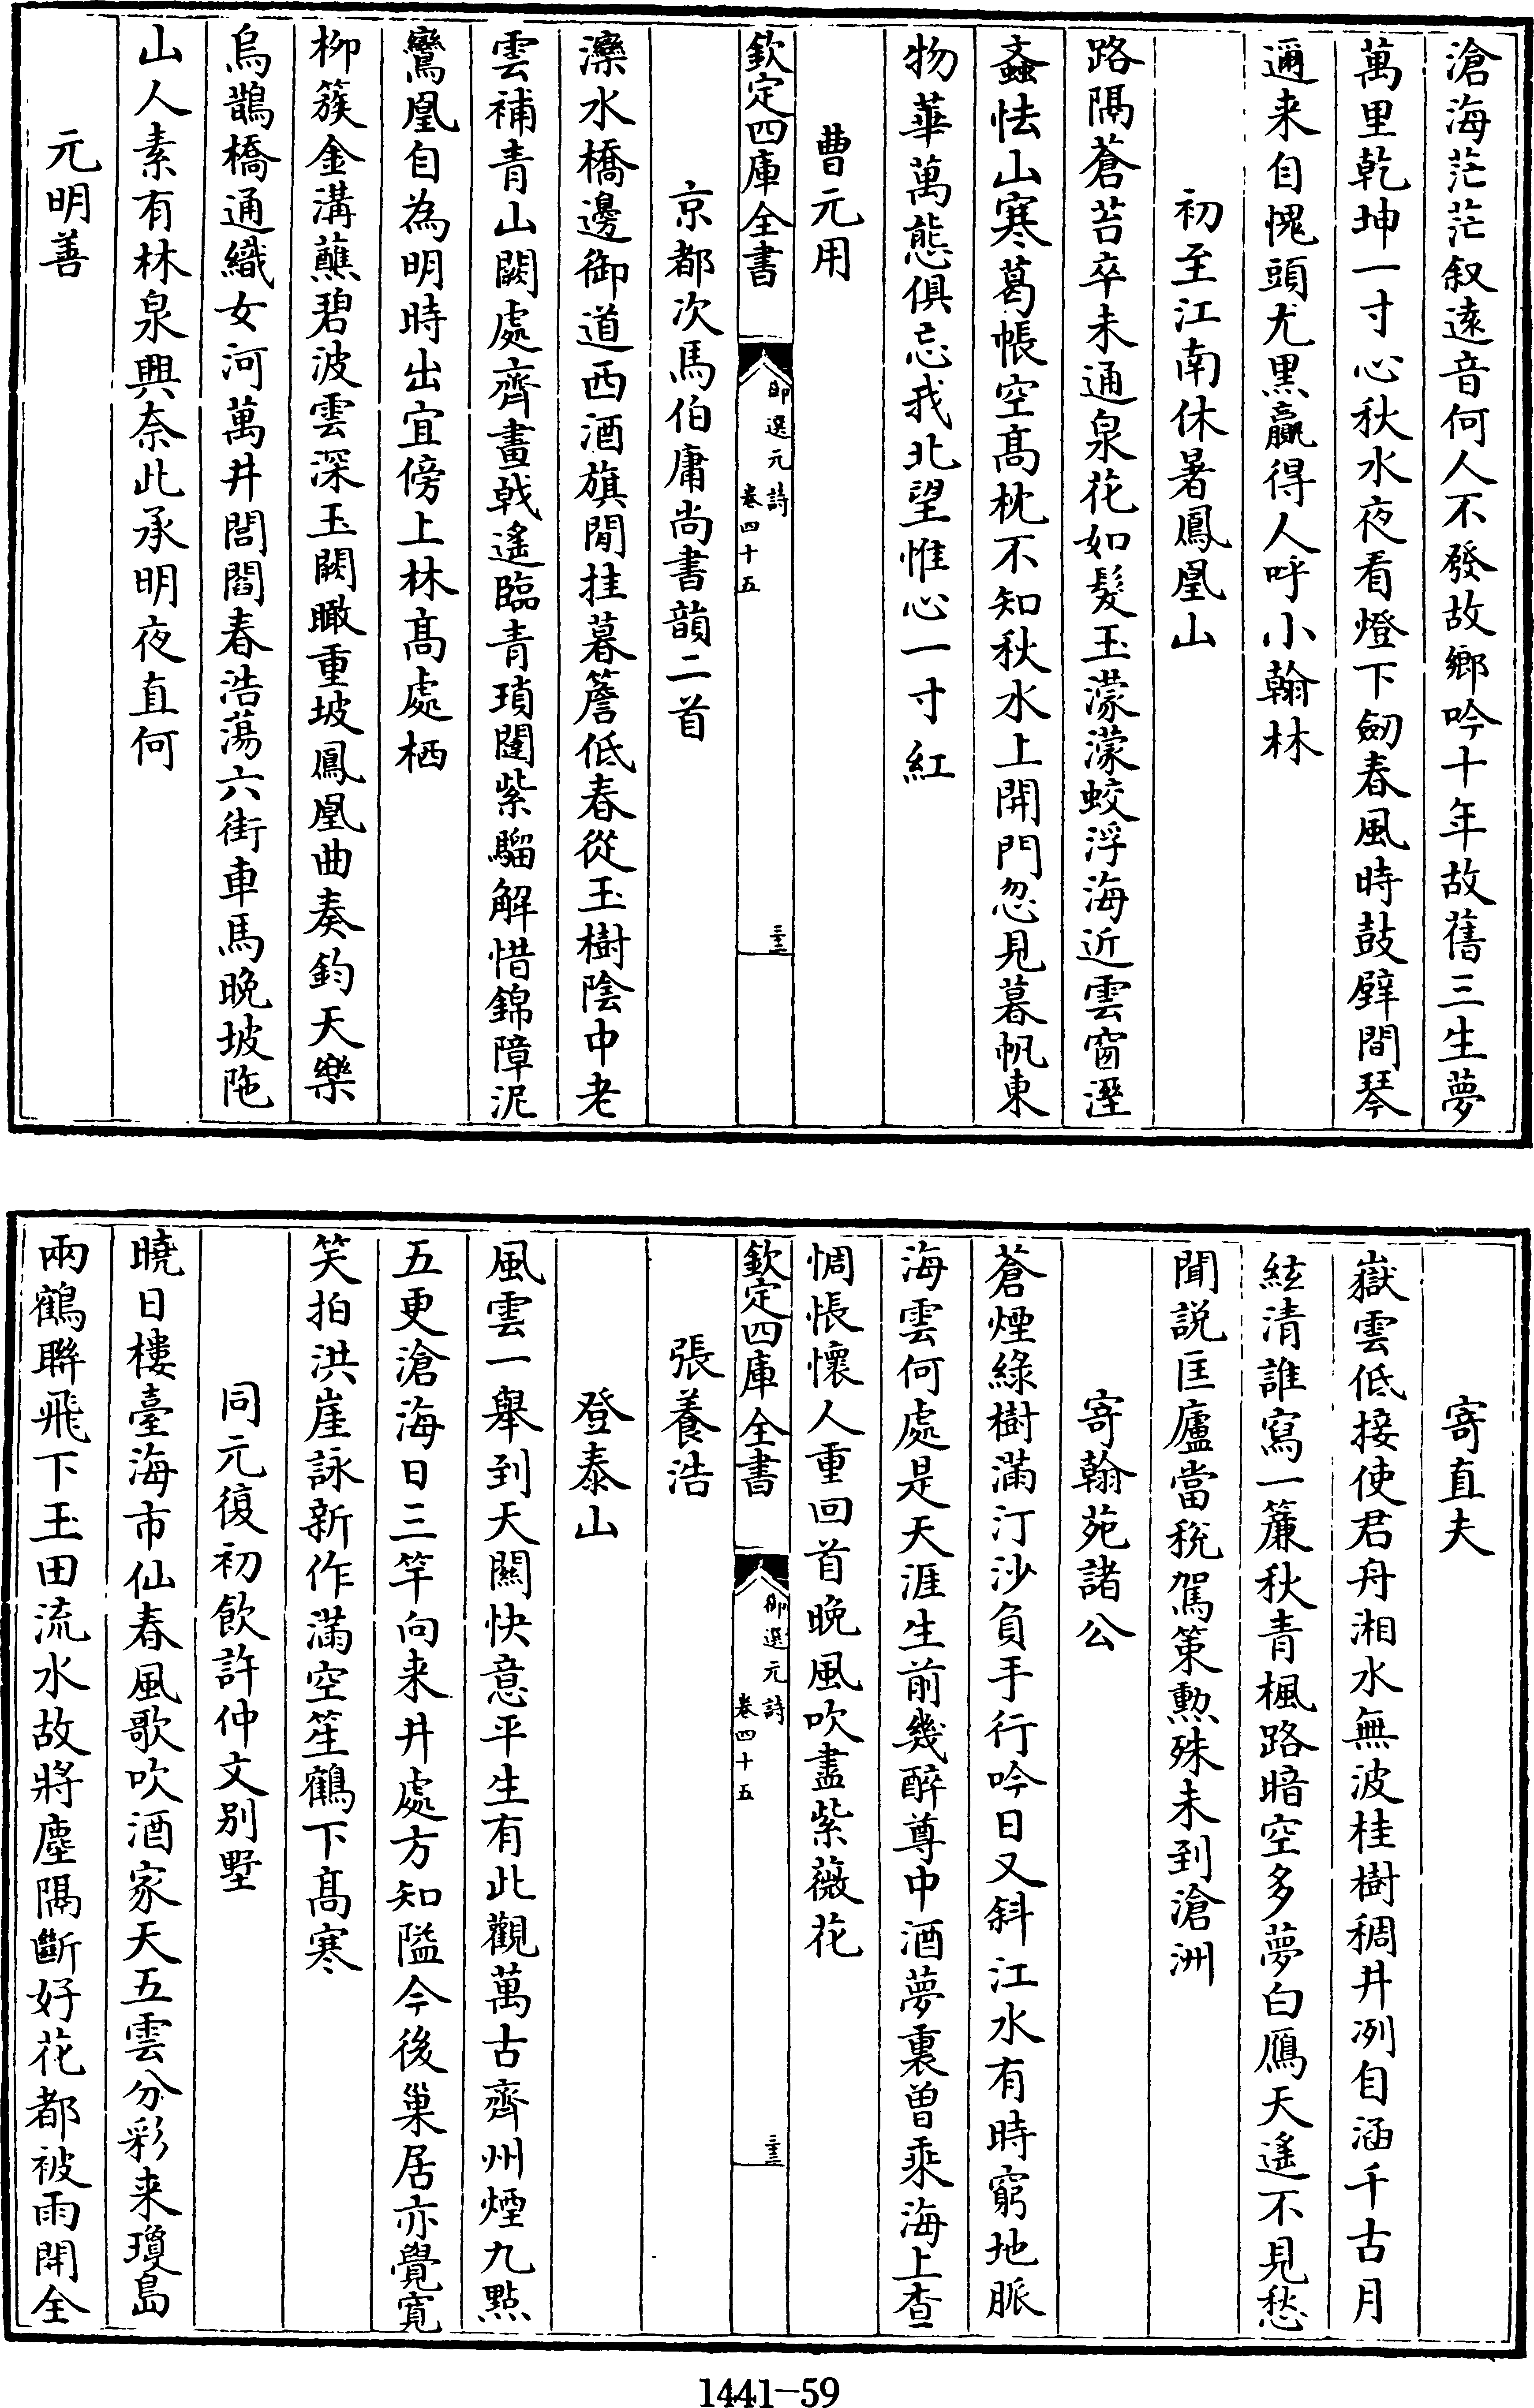 滄海茫茫叙逺音何人不發故鄉吟十年故舊三生夢
萬里乾坤一寸心秋水夜看燈下劒春風時鼓壁間琴
邇来自愧頭尤黒贏得人呼小翰林
初至江南休暑鳳凰山
路隔蒼苔卒未通泉花如髮玉濛濛蛟浮海近雲窗溼
蟁怯山寒葛帳空髙枕不知秋水上開門忽見暮帆東
物華萬態俱忘我北望惟心一寸紅
曹元用
欽定四庫全書
御選元詩
卷四十五
三三
京都次馬伯庸尚書韻二首
灤水橋邊御道西酒旗閒挂暮簷低春從玉樹陰中老
雲補青山闕處齊畫戟遙臨青瑣闥紫騮解惜錦障泥
鸞凰自為明時出宜傍上林髙處栖
柳簇金溝蘸碧波雲深玉闕瞰重坡鳳凰曲奏鈞天樂
烏鵲橋通織女河萬井閭閻春浩蕩六街車馬晚坡陁
山人素有林泉興奈此承明夜直何
元明善
寄直夫
嶽雲低接使君舟湘水無波桂樹稠井冽自涵千古月
絃清誰寫一簾秋青楓路暗空多夢白鴈天遙不見愁
聞説匡廬當稅駕策勲殊未到滄洲
寄翰苑諸公
蒼煙綠樹滿汀沙負手行吟日又斜江水有時窮地脈
海雲何處是天涯生前幾醉尊中酒夢裏曾乘海上查
惆悵懷人重回首晚風吹盡紫薇花
欽定四庫全書
御選元詩
卷四十五
三三
張養浩
登泰山
風雲一舉到天關快意平生有此觀萬古齊州煙九點
五更滄海日三竿向来井處方知隘今後巢居亦覺寛
笑拍洪崖詠新作滿空笙鶴下髙寒
同元復初飲許仲文别墅
曉日樓臺海市仙春風歌吹酒家天五雲分彩来瓊島
兩鶴聯飛下玉田流水故將塵隔斷好花都被雨開全
1441-59